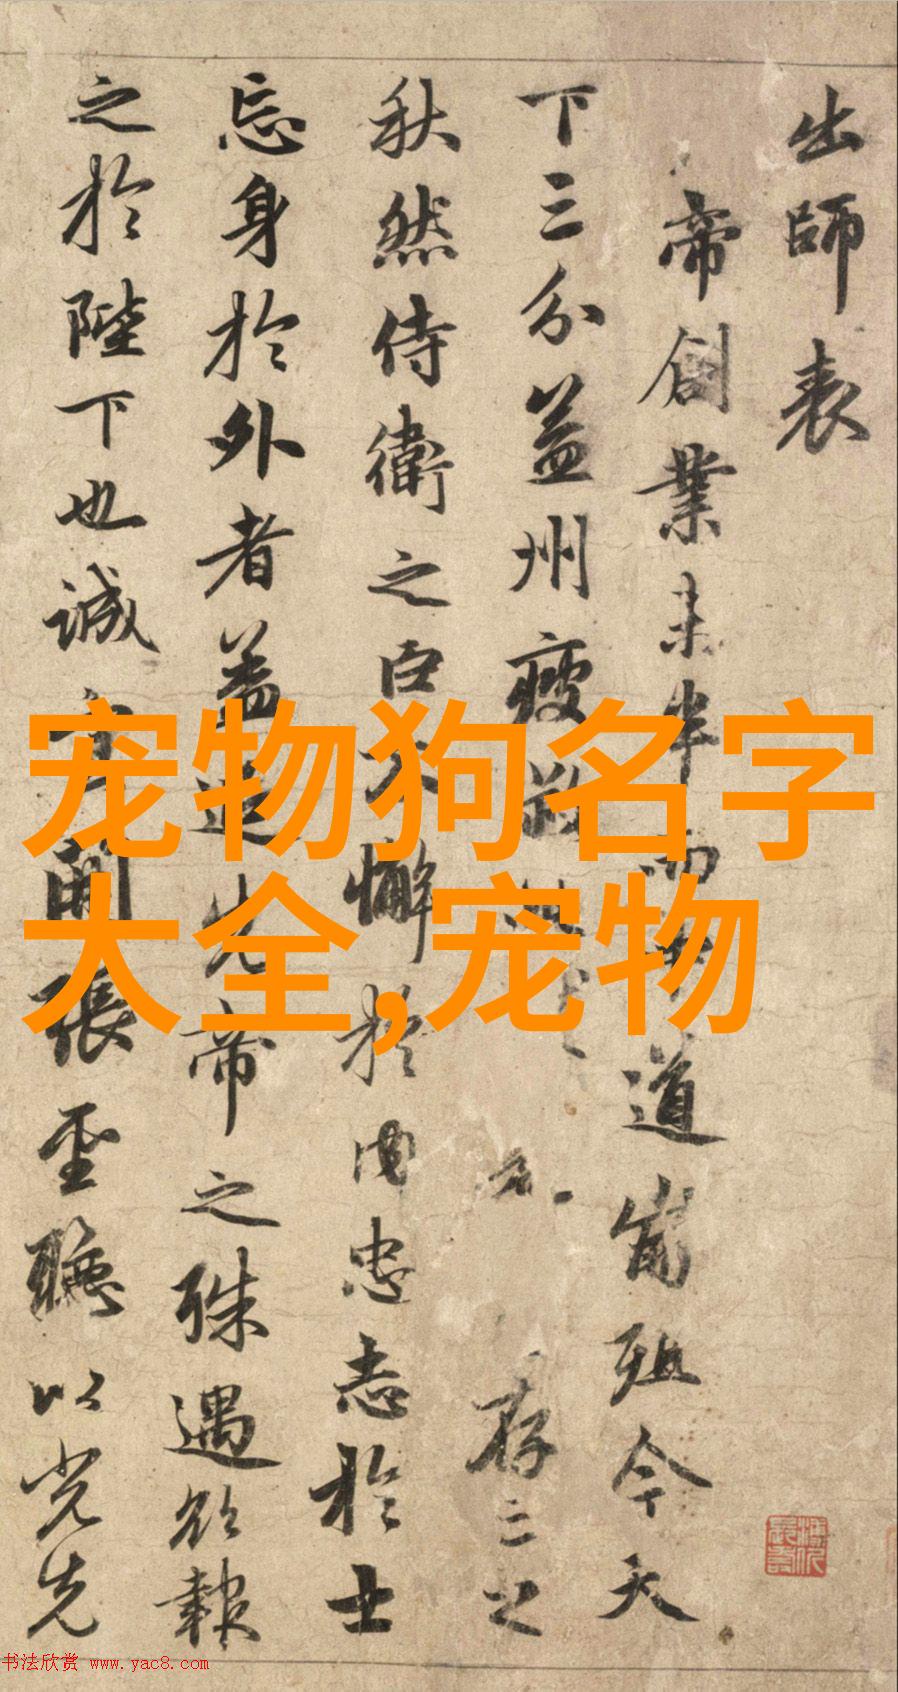 出師表
帝創業未半而道崩殂今天
下三分益州疲存亡之
秋然侍衛之臣不懈於内忠志於士
忘身於外者蓋追先帝之殊遇欲報
之於陛下也誠宜開張聖聽以光先
宠物狗名字
大全,宠物
书法欣赏 www.yac8.com